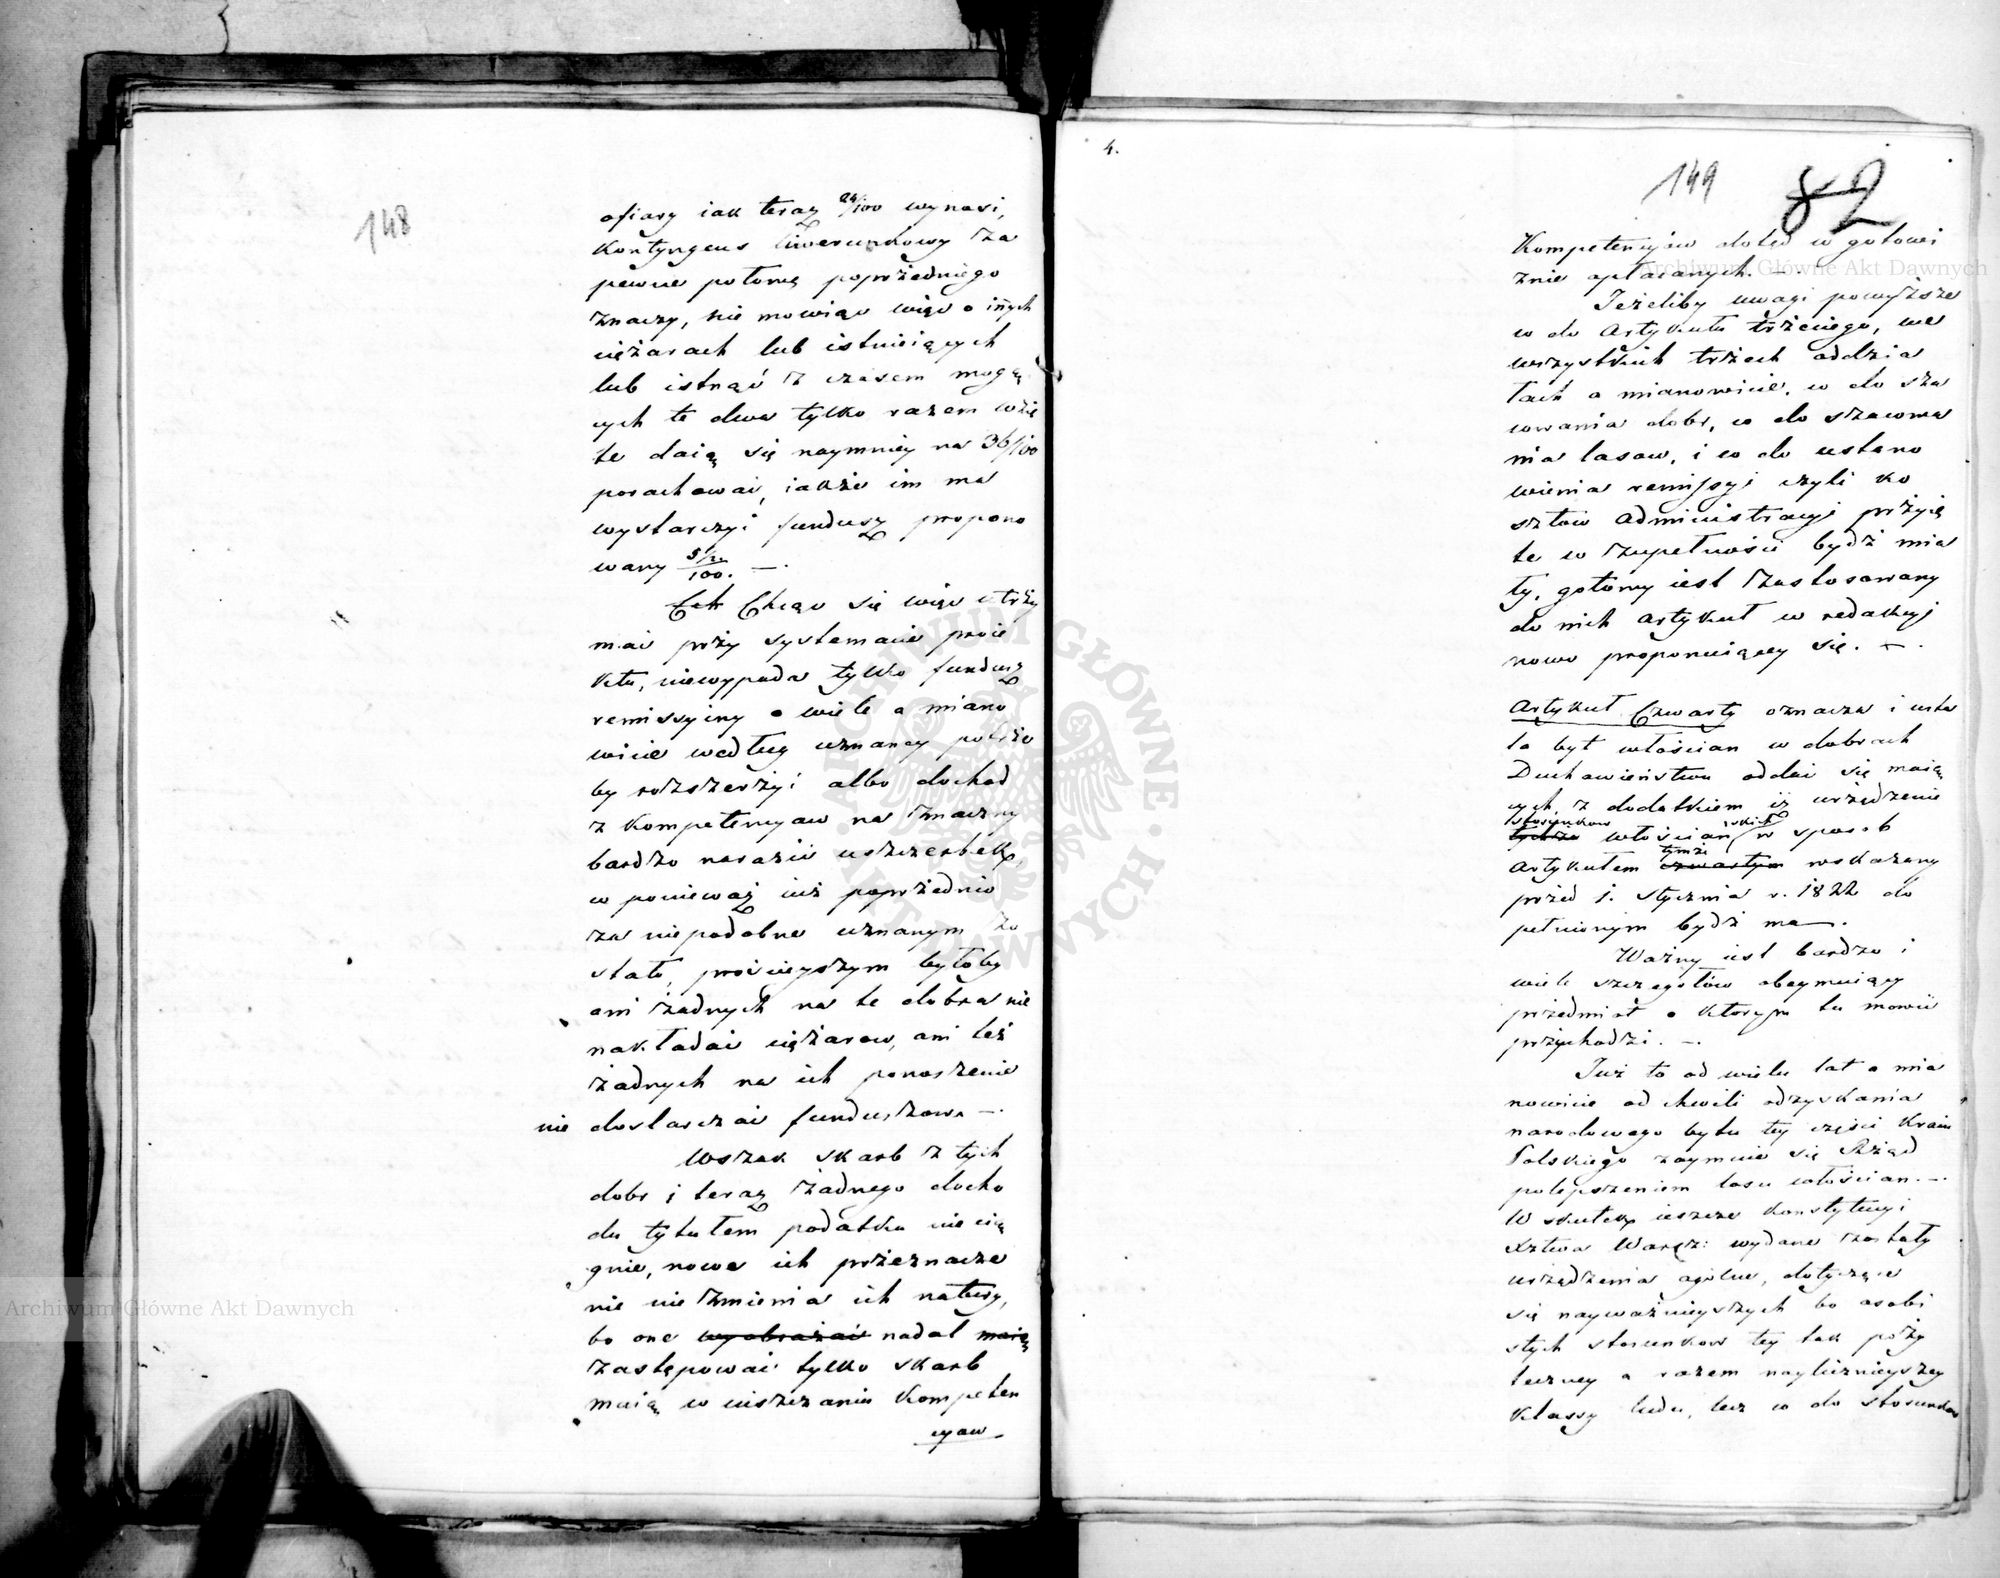 148
ofiary iak teraz 24/100 wynosi,
Kontyngens liwerunkowy za
pewne połowę poprzedniego
znaczy, nie mowiąc więc o iñych
ciężarach lub istnieiących
lub istnąć z czasem mogą
cych te dwa tylko razem wzię
te daią się naymniey na 36/100
porachować, iakże im ma
wystarczyć fundusz propono
wany 5/100. —.
Chcąc się więc utrzy
mać przy systemacie proie
ktu, niewypada tylko fundusz
remissyiny o wiele a miano
wicie według uznaney potrze
by rozszerzyć albo dochod
z kompetencyow na znaczny
bardzo narazić uszczerbek,
co ponieważ iuż poprzednio
za niepodobne uznanym zo
stało, prościeyszym byłoby
ani żadnych na te dobra nie
nakładać ciężarow, ani też
żadnych na ich ponoszenie
nie dostarczać funduszow. —.
Wszak skarb z tych
dobr i teraz żadnego docho
du tytułem podatku nie cią
gnie, nowe ich przeznacze
nie nie zmienia ich natury,
bo one wyobrażać nadal maią
zastępować tylko skarb
maią w uiszczaniu Kompeten
cyow
4.
149
82
Kompetencyow dotąd w gotowi
znie opłacanych. —.
Jeżeliby uwagi powyższe
co do Artykułu trzeciego, we
wszystkich trzech oddzia
łach a mianowicie, co do sza
cowania dobr, co do szacowa
nia lasow, i co do ustano
wienia remissyi czyli ko
sztów administracyi przyię
te w zupełności bydź mia
ły, gotowy iest zastosowany
do nich artykuł w redakcyi
nowo proponuiącey się. —.
Artykuł Czwarty oznacza i usta
la byt włościan w dobrach
Duchowieństwu oddać się maią
cych, z dodatkiem iż urządzenie
stosunkow skich
tychże włościan w sposob
tymże
Artykułem czwartym wskazany
przed 1. Stycznia r. 1822 do
pełnionym bydź ma —.
Ważny iest bardzo i
wiele szczegółów obeymuiący
przedmiot o ktorym tu mowić
przychodzi. —.
Już to od wielu lat a mia
nowicie od chwili odzyskania
narodowego bytu tey części Kraiu
Polskiego zaymuie się Rząd
polepszeniem losu włościan. —.
W skutek ieszcze Konstytucyi
Xztwa Warsz: wydane zostały
urządzenia ogólne, dotyczące
się nayważnieyszych bo osobi
stych stosunkow tey tak poży
teczney a razem nayliczniejszey
klassy ludu, lecz co do stosunkow
Archiwum Główne Akt Dawnych
Archiwum Główne Akt Dawnych
ARCHIWUM GŁÓWNE · AKT DAWNYCH ·